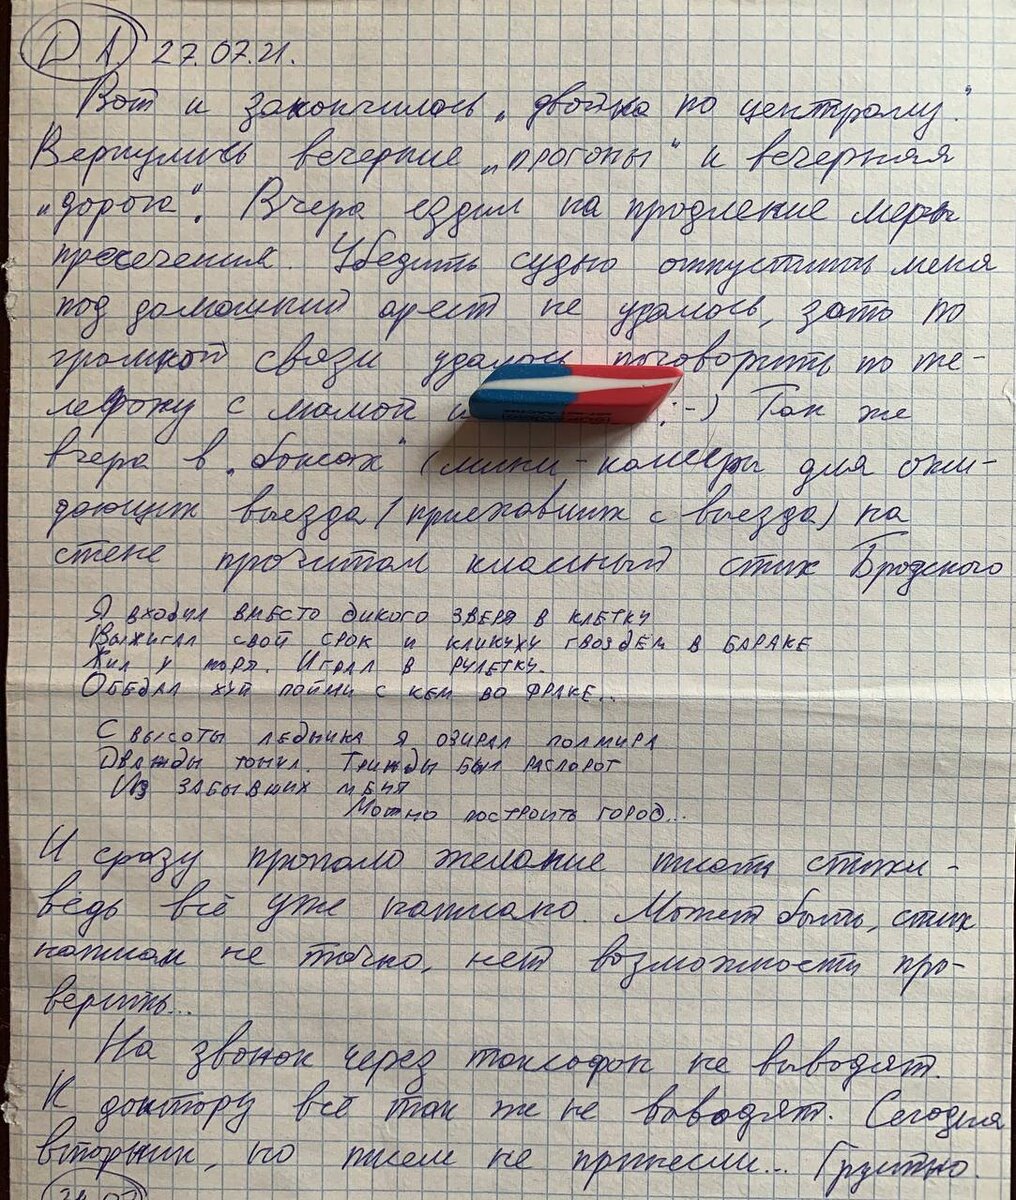 D A 27.07.21.
Вот и закончилась „двойка по централу".
Вернулись вечерние „прогоны" и вечерняя
„дорога". Вчера ездил на продление меры
пресечения. Убедить судью отпустить меня
под домашний арест не удалось, зато по
громкой связи удалось поговорить по те-
лефону с мамой и :-) Так же
вчера в „боксах" (мини-камеры для ожи-
дающих выезда/приехавших с выезда) на
стене прочитал классный стих Бродского
Я входил вместо дикого зверя в клетку
Выжигал свой срок и кликуху гвоздём в бараке
Жил у моря. Играл в рулетку.
Обедал хуй пойми с кем во фраке...
С высоты ледника я озирал полмира
Дважды тонул. Трижды был распорот
Из забывших меня
Можно построить город...
И сразу пропало желание писать стихи -
ведь всё уже написано. Может быть, стих
написан не точно, нет возможности про-
верить...
На звонок через таксофон не выводят.
К доктору всё так же не выводят. Сегодня
вторник, но писем не принесли... Грустно.